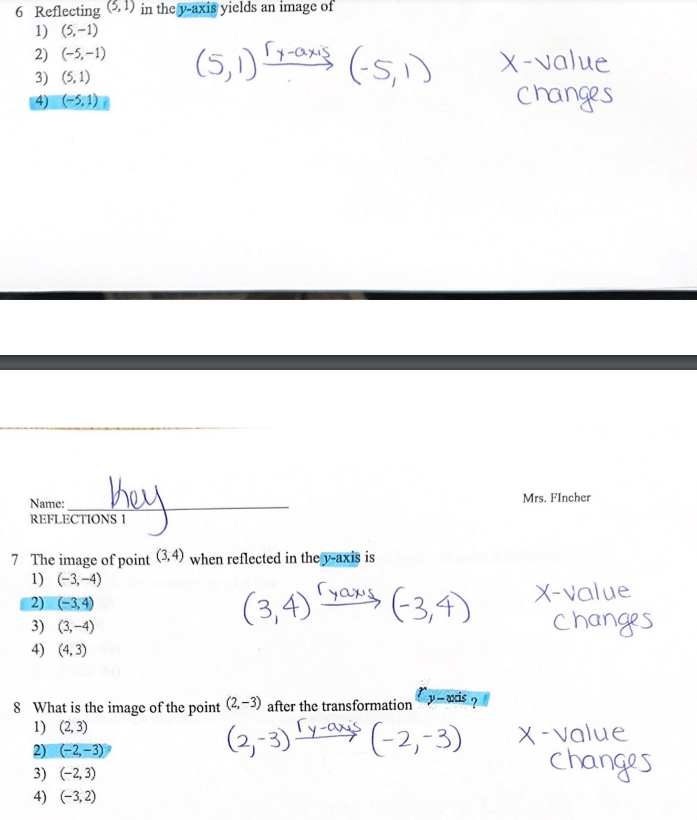 6 Reflecting (5,1) in the y-axis yields an image of
1) (5,−1)
2) (−5,−1)
3) (5,1)
4) (−5,1)
(5,1) r y-axis → (-5,1)
X-value
changes
Name: Key
Mrs. FIncher
REFLECTIONS 1
7 The image of point (3,4) when reflected in the y-axis is
1) (−3,−4)
2) (−3,4)
3) (3,−4)
4) (4,3)
(3,4) r yaxis → (-3,4)
X-value
changes
8 What is the image of the point (2,−3) after the transformation r y−axis ?
1) (2,3)
2) (−2,−3)
3) (−2,3)
4) (−3,2)
(2,-3) r y-axis → (-2,-3)
X-value
changes